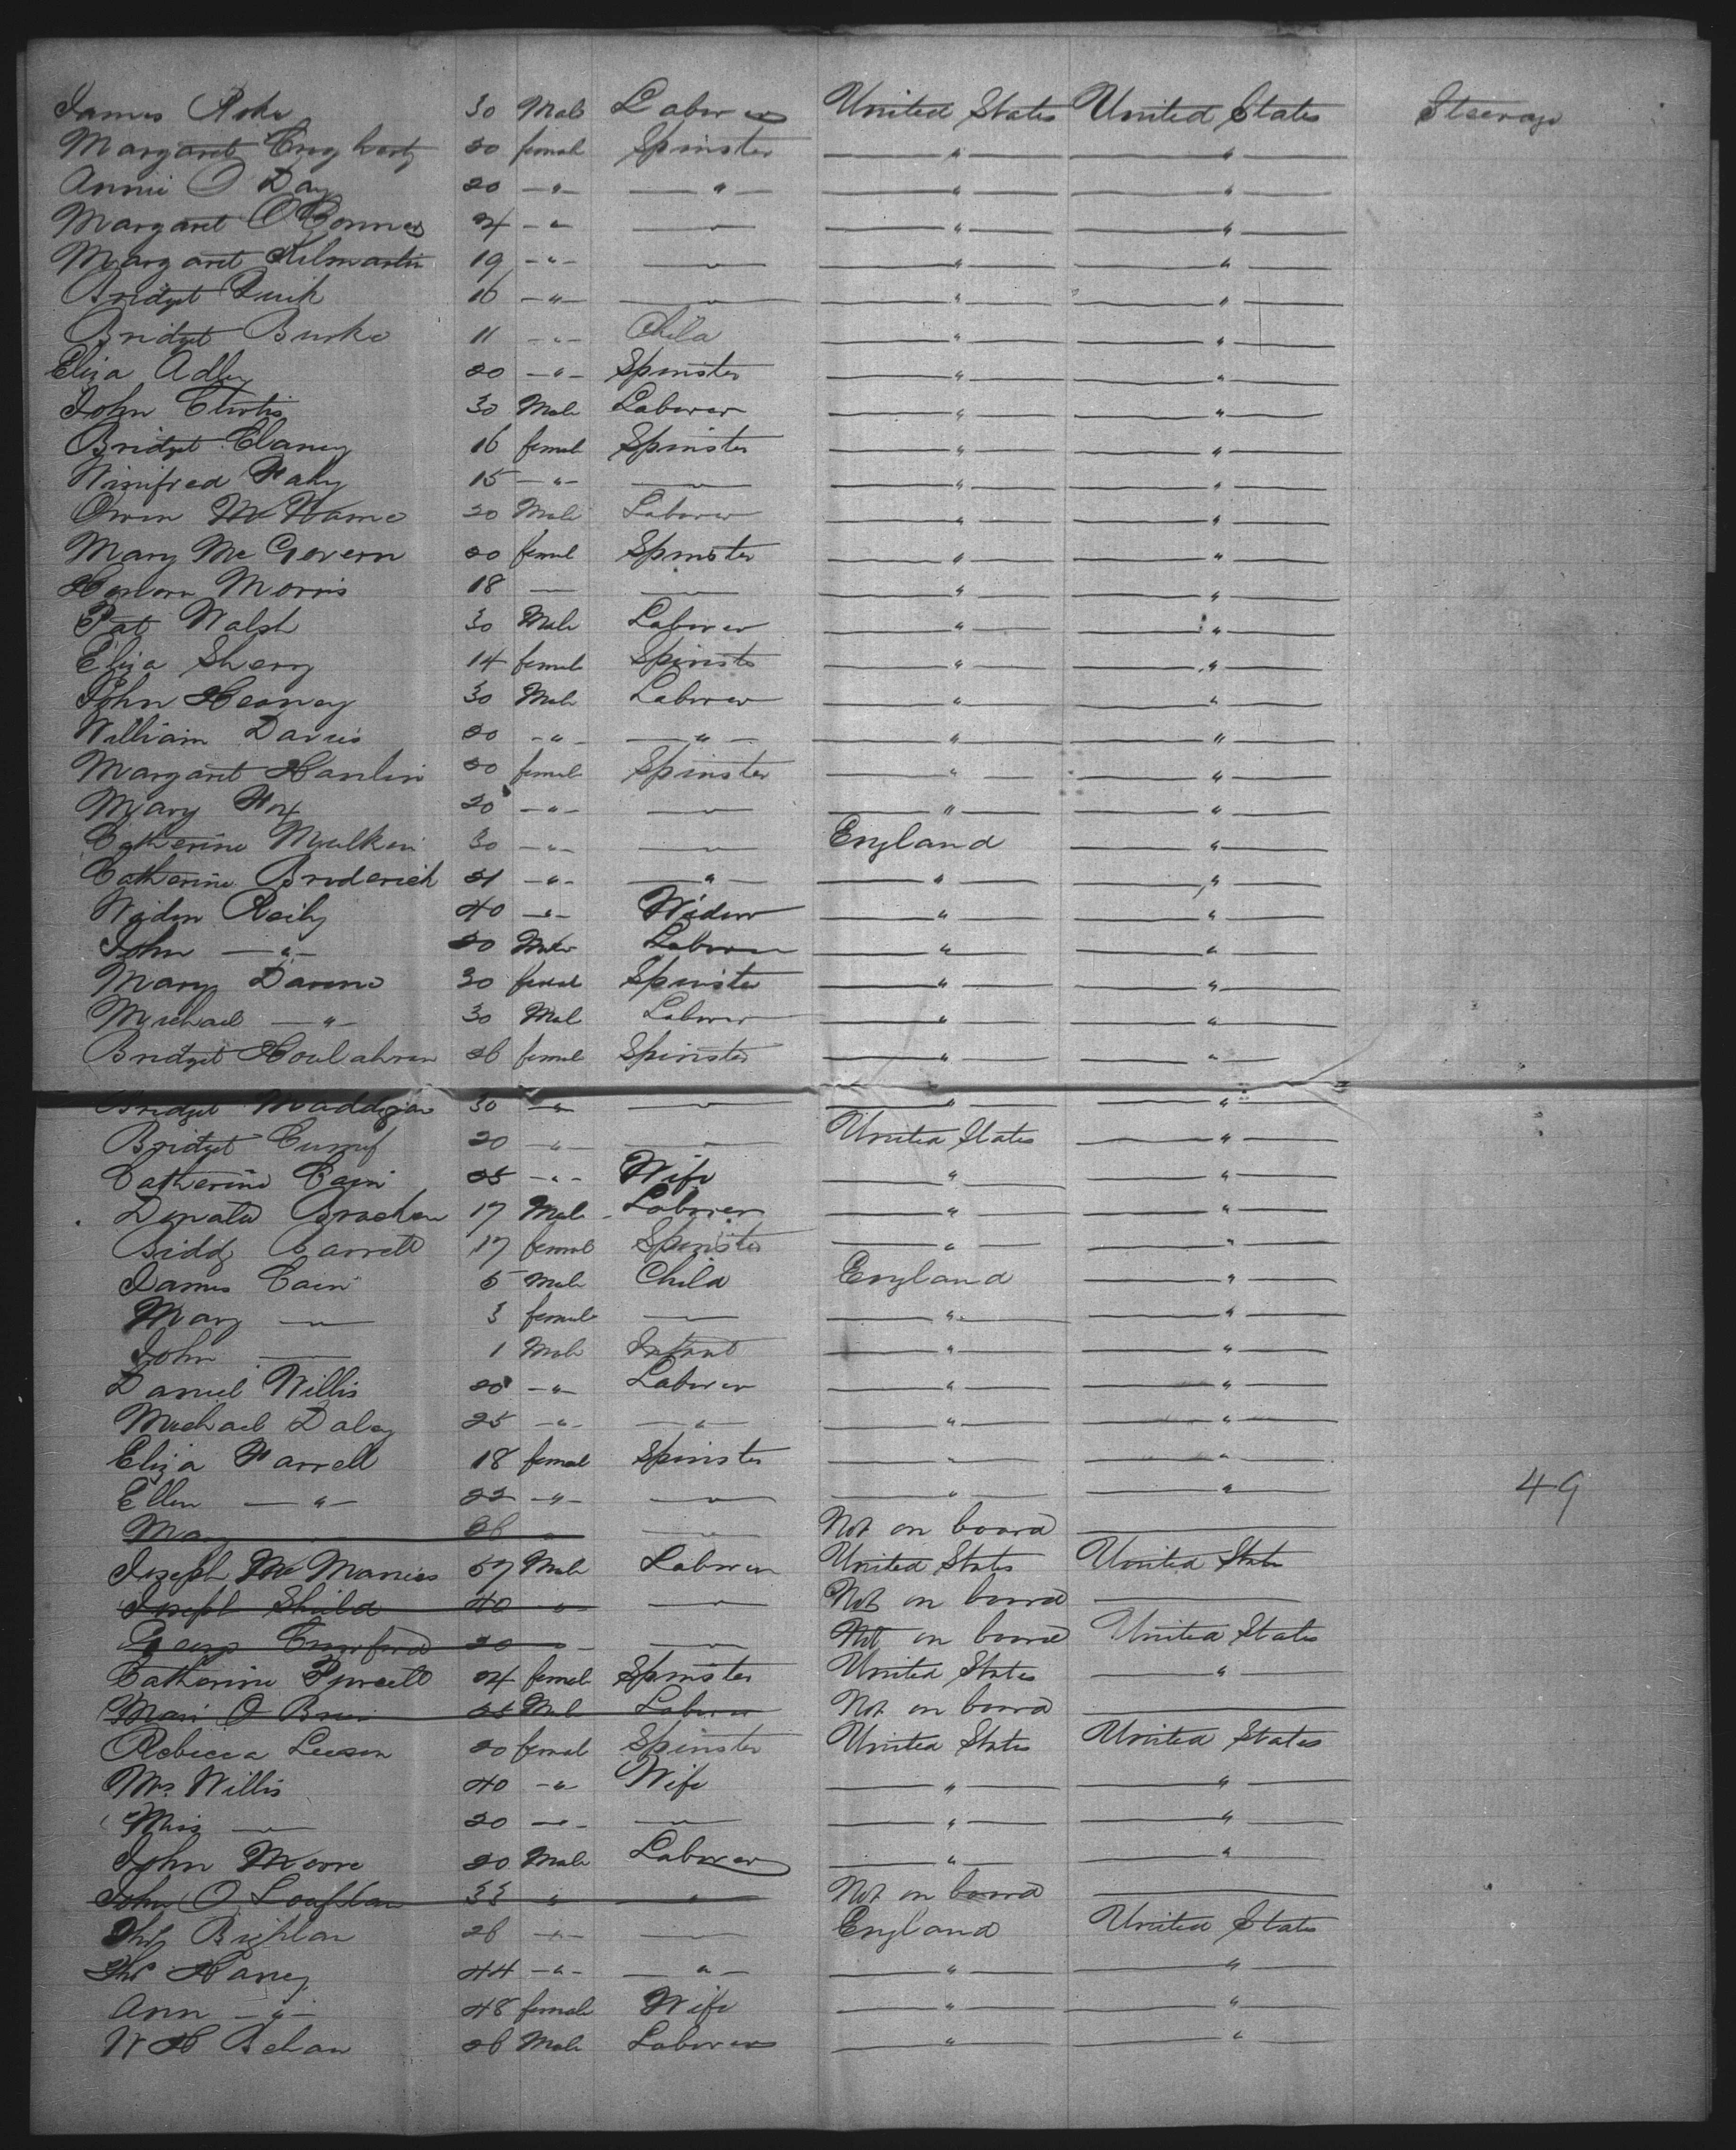 James Roke 30 Male Laborer United States United States Steerage
Margaret 20 female Spinster — " — — " —
Annie O Day 20 — " — — " — — " — — " —
Margaret O Connor 24 — " — — " — — " — — " —
Margaret Kilmartin 19 — " — — " — — " — — " —
Bridget Quirk 16 — " — — " — — " — — " —
Bridget Burke 11 — " — Child — " — — " —
Eliza Adley 20 — " — Spinster — " — — " —
John Curtis 30 Male Laborer — " — — " —
Bridget Clancy 16 female Spinster — " — — " —
Winifred Fahy 15 — " — — " — — " — — " —
Owen Mc Name 20 Male Laborer — " — — " —
Mary Mc Govern 20 female Spinster — " — — " —
Honora Morris 18 — — " — — " — — " —
Pat Walsh 30 Male Laborer — " — — " —
Eliza Sherry 14 female Spinster — " — — " —
John Heaney 30 Male Laborer — " — — " —
William Davis 20 — " — — " — — " — — " —
Margaret Hanlin 20 female Spinster — " — — " —
Mary Fox 20 — " — — " — — " — — " —
Catherine Mulken 30 — " — — " — England — " —
Catherine Broderick 21 — " — — " — — " — — " —
Widow Reily 40 — " — Widow — " — — " —
John — " — 20 Male Laborer — " — — " —
Mary 30 female Spinster — " — — " —
Michael — " — 30 Male Laborer — " — — " —
Bridget Houlahan 26 female Spinster — " — — " —
Bridget Maddigan 30 — " — — " — — " — — " —
Bridget 20 — " — — " — United States — " —
Catherine Cain 25 — " — Wife — " — — " —
Bracken 17 Male Laborer — " — — " —
Biddy Barrett 17 female Spinster — " — — " —
James Cain 5 Male Child England — " —
Mary — " — 3 female — " — — " — — " —
John — 1 Male Infant — " — — " —
Daniel Willis 20 — " — Laborer — " — — " —
Michael Daley 25 — " — — " — — " — — " —
Eliza Farrell 18 female Spinster — " — — " —
Ellen — " — 22 — " — — " — — " — — " — 49
Mary 26 " — " — Not on board —
Joseph Mc Manies 57 Male Laborer United States United States
Joseph Shield 40 — " — — " — Not on board —
George Crawford 20 — " — — " — Not on board United States
Catherine Purcell 24 female Spinster United States — " —
O Brien 25 Male Laborer Not on board —
Rebecca Leeson 20 female Spinster United States United States
Mrs Willis 40 — " — Wife — " — — " —
Miss — " — 20 — " — — " — — " — — " —
John Moore 20 Male Laborer — " — — " —
John O Loughlan 33 " " Not on board —
26 — " — — " — England United States
Thos Haney 44 — " — — " — — " — — " —
Ann — " — 48 female Wife — " — — " —
W H Behan 26 Male Laborer — " — — " —